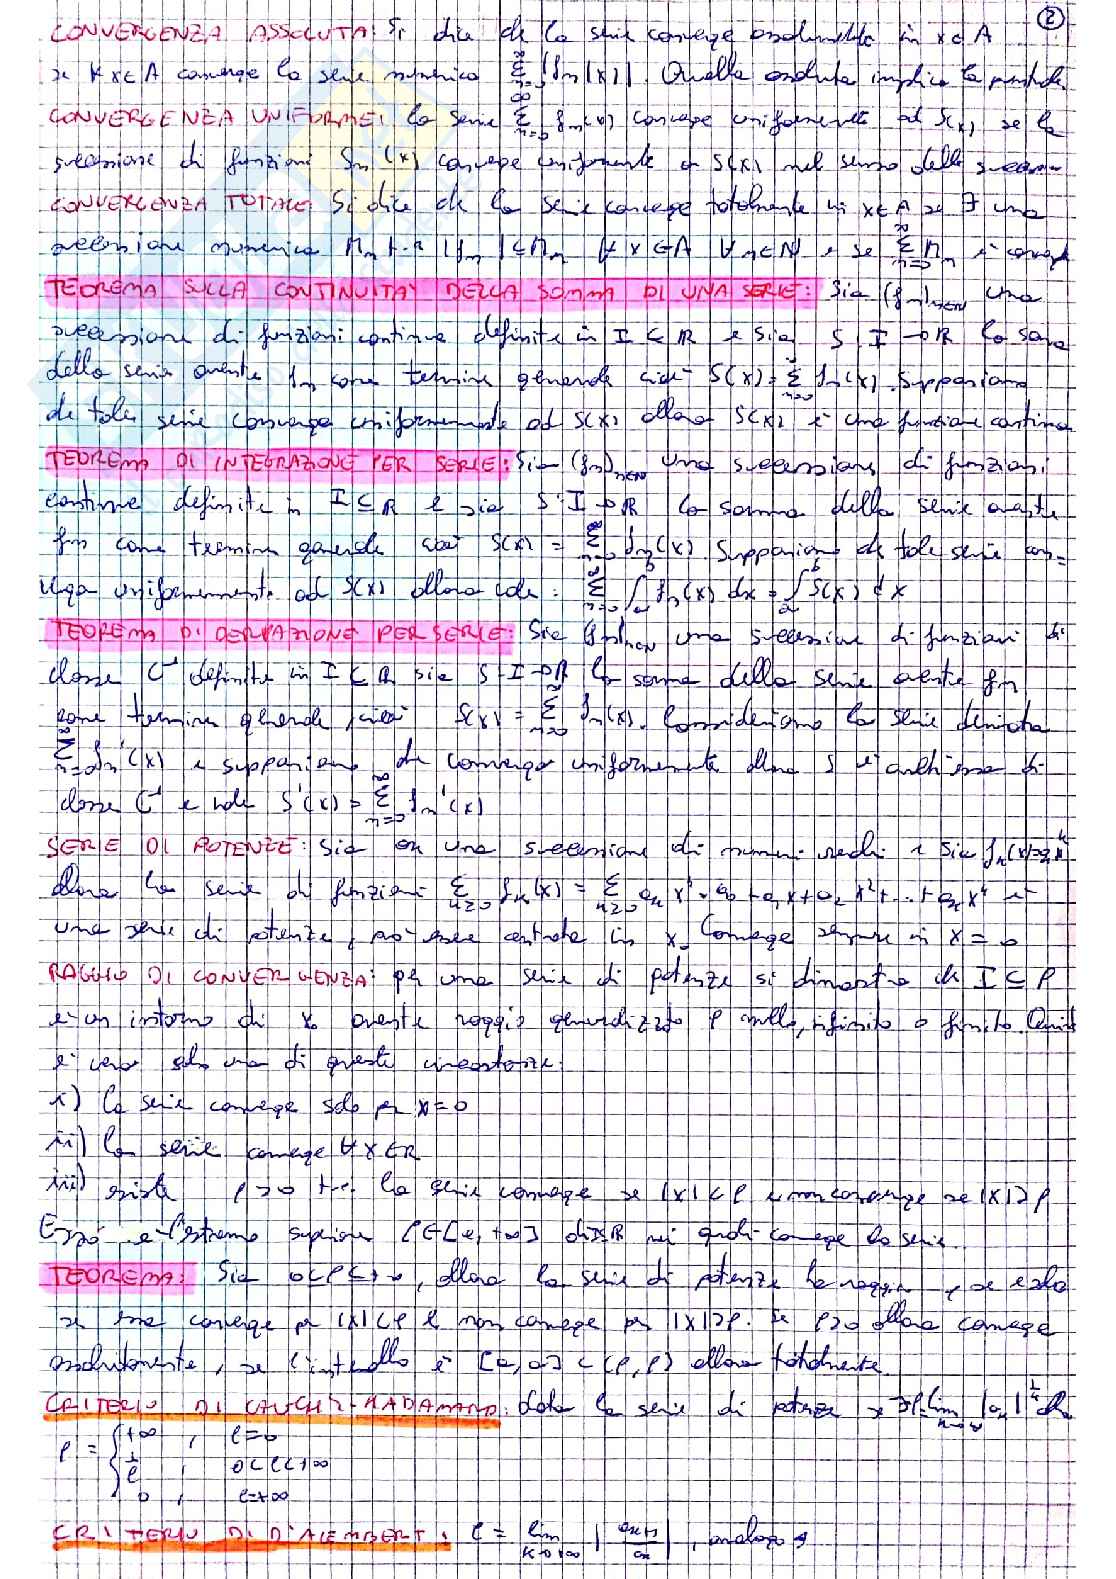 2
CONVERGENZA ASSOLUTA: Si dice che la serie converge assolutamente in x∈A
se ∀x∈A converge la serie numerica ∑_{n=0}^{∞} |f_n(x)|. Quella assoluta implica la puntuale
CONVERGENZA UNIFORME: la serie ∑_{n=0}^{∞} f_n(x) converge uniformemente ad S(x) se la
successione di funzioni S_n(x) converge uniformemente a S(x) nel senso delle
CONVERGENZA TOTALE: Si dice che la serie converge totalmente in x∈A se ∃ una
successione numerica M_n t.c. |f_n| ≤ M_n ∀x∈A ∀n∈N e se ∑_{n=0}^{∞} M_n è
TEOREMA SULLA CONTINUITA' DELLA SOMMA DI UNA SERIE: Sia (f_n)_{n∈N} una
successione di funzioni continue definite in I ⊆ R e sia S: I → R la somma
della serie avente f_n come termine generale cioè S(x) = ∑_{n=0}^{∞} f_n(x). Supponiamo
che tale serie converga uniformemente ad S(x) allora S(x) è una funzione continua
TEOREMA DI INTEGRAZIONE PER SERIE: Sia (f_n)_{n∈N} una successione di funzioni
continue definite in I ⊆ R e sia S: I → R la somma della serie avente
f_n come termine generale cioè S(x) = ∑_{n=0}^{∞} f_n(x). Supponiamo che tale serie con-
verga uniformemente ad S(x) allora vale: ∑_{n=0}^{∞} ∫_a^b f_n(x) dx = ∫_a^b S(x) dx
TEOREMA DI DERIVAZIONE PER SERIE: Sia (f_n)_{n∈N} una successione di funzioni di
classe C¹ definite in I ⊆ R sia S: I → R la somma della serie avente f_n
come termine generale cioè S(x) = ∑_{n=0}^{∞} f_n(x). Consideriamo la serie derivata
∑_{n=0}^{∞} f_n'(x) e supponiamo che converga uniformemente allora S è anch'essa di
classe C¹ e vale S'(x) = ∑_{n=0}^{∞} f_n'(x)
SERIE DI POTENZE: Sia a_k una successione di numeri reali e sia f_k(x)=a_k x^k
allora la serie di funzioni ∑_{k≥0} f_k(x) = ∑_{k≥0} a_k x^k = a_0 + a_1 x + a_2 x² + ... + a_k x^k è
una serie di potenze, può essere centrata in x_0. Converge sempre in x = 0
RAGGIO DI CONVERGENZA: per una serie di potenze si dimostra che I ⊆ R
è un intorno di x_0 avente raggio generalizzato ρ nullo, infinito o finito. Quindi
è vera solo una di queste circostanze:
i) la serie converge solo per x=0
ii) la serie converge ∀x∈R
iii) esiste ρ>0 t.c. la serie converge se |x|<ρ e non converge se |x|>ρ
Esso è l'estremo superiore ρ∈[0, +∞] di x∈R nei quali converge la serie.
TEOREMA: Sia 0<ρ<+∞, allora la serie di potenze ha raggio ρ se e solo
se essa converge per |x|<ρ e non converge per |x|>ρ. Se ρ>0 allora converge
assolutamente, se l'intervallo è [a, a] ⊂ (ρ, ρ) allora totalmente.
CRITERIO DI CAUCHY-HADAMARD: data la serie di potenze se ∃ℓ=lim_{k→∞} |a_k|^{1/k} allora
ρ = { +∞, ℓ=0
1/ℓ, 0<ℓ<+∞
0, ℓ=+∞
CRITERIO DI D'ALEMBERT: ℓ = lim_{k→+∞} |a_{k+1}/a_k|, analogo